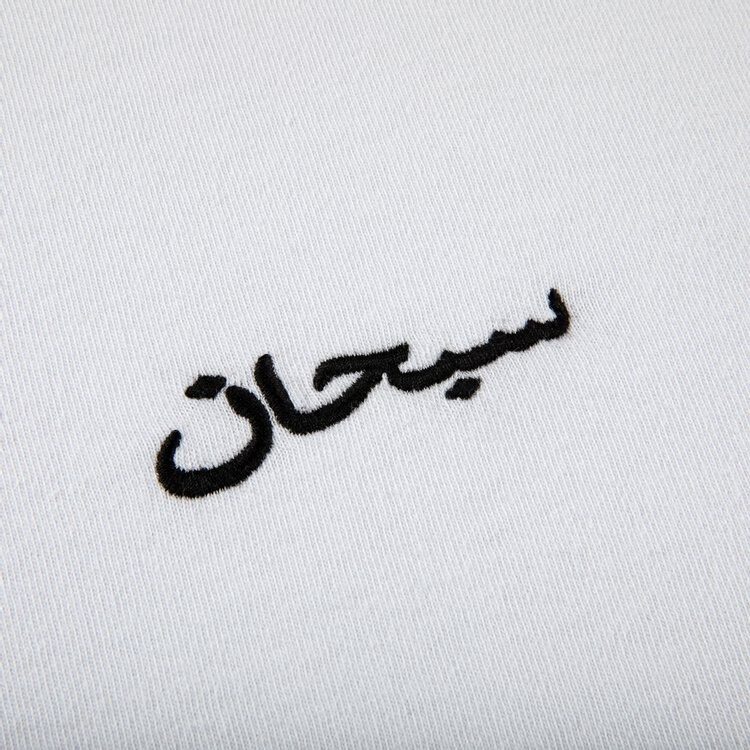 سبحان